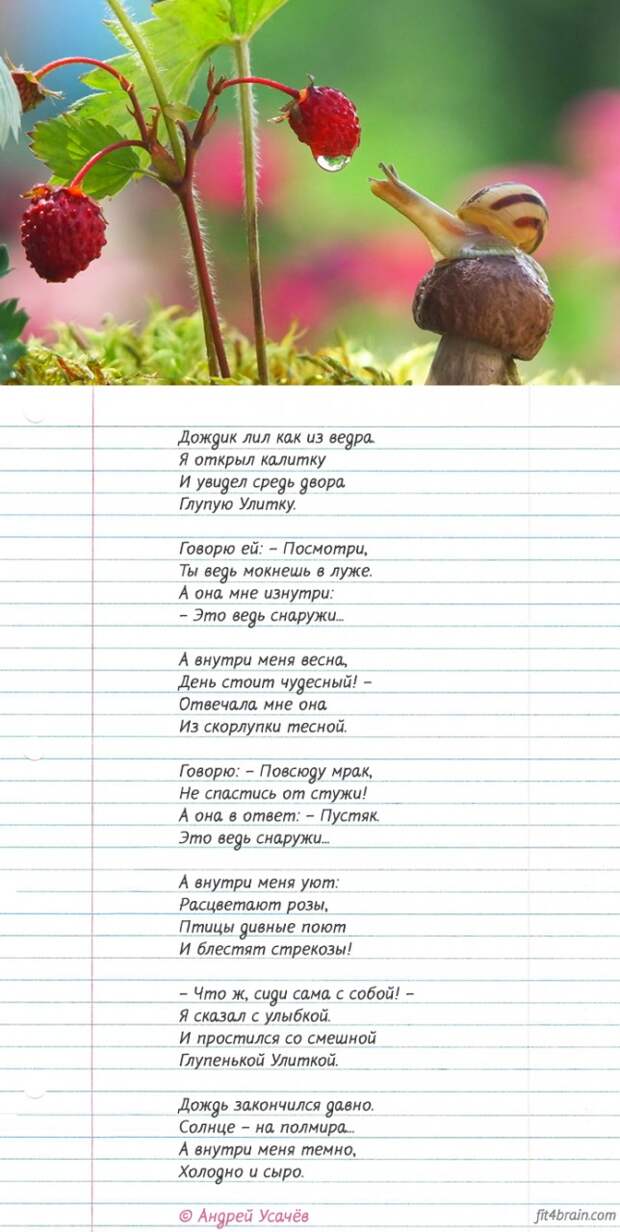 Дождик лил как из ведра.
Я открыл калитку
И увидел средь двора
Глупую Улитку.

Говорю ей: – Посмотри,
Ты ведь мокнешь в луже.
А она мне изнутри:
– Это ведь снаружи...

А внутри меня весна,
День стоит чудесный! –
Отвечала мне она
Из скорлупки тесной.

Говорю: – Повсюду мрак,
Не спастись от стужи!
А она в ответ: – Пустяк.
Это ведь снаружи...

А внутри меня уют:
Расцветают розы,
Птицы дивные поют
И блестят стрекозы!

– Что ж, сиди сама с собой! –
Я сказал с улыбкой.
И простился со смешной
Глупенькой Улиткой.

Дождь закончился давно.
Солнце – на полмира...
А внутри меня темно,
Холодно и сыро.

© Андрей Усачёв
fit4brain.com